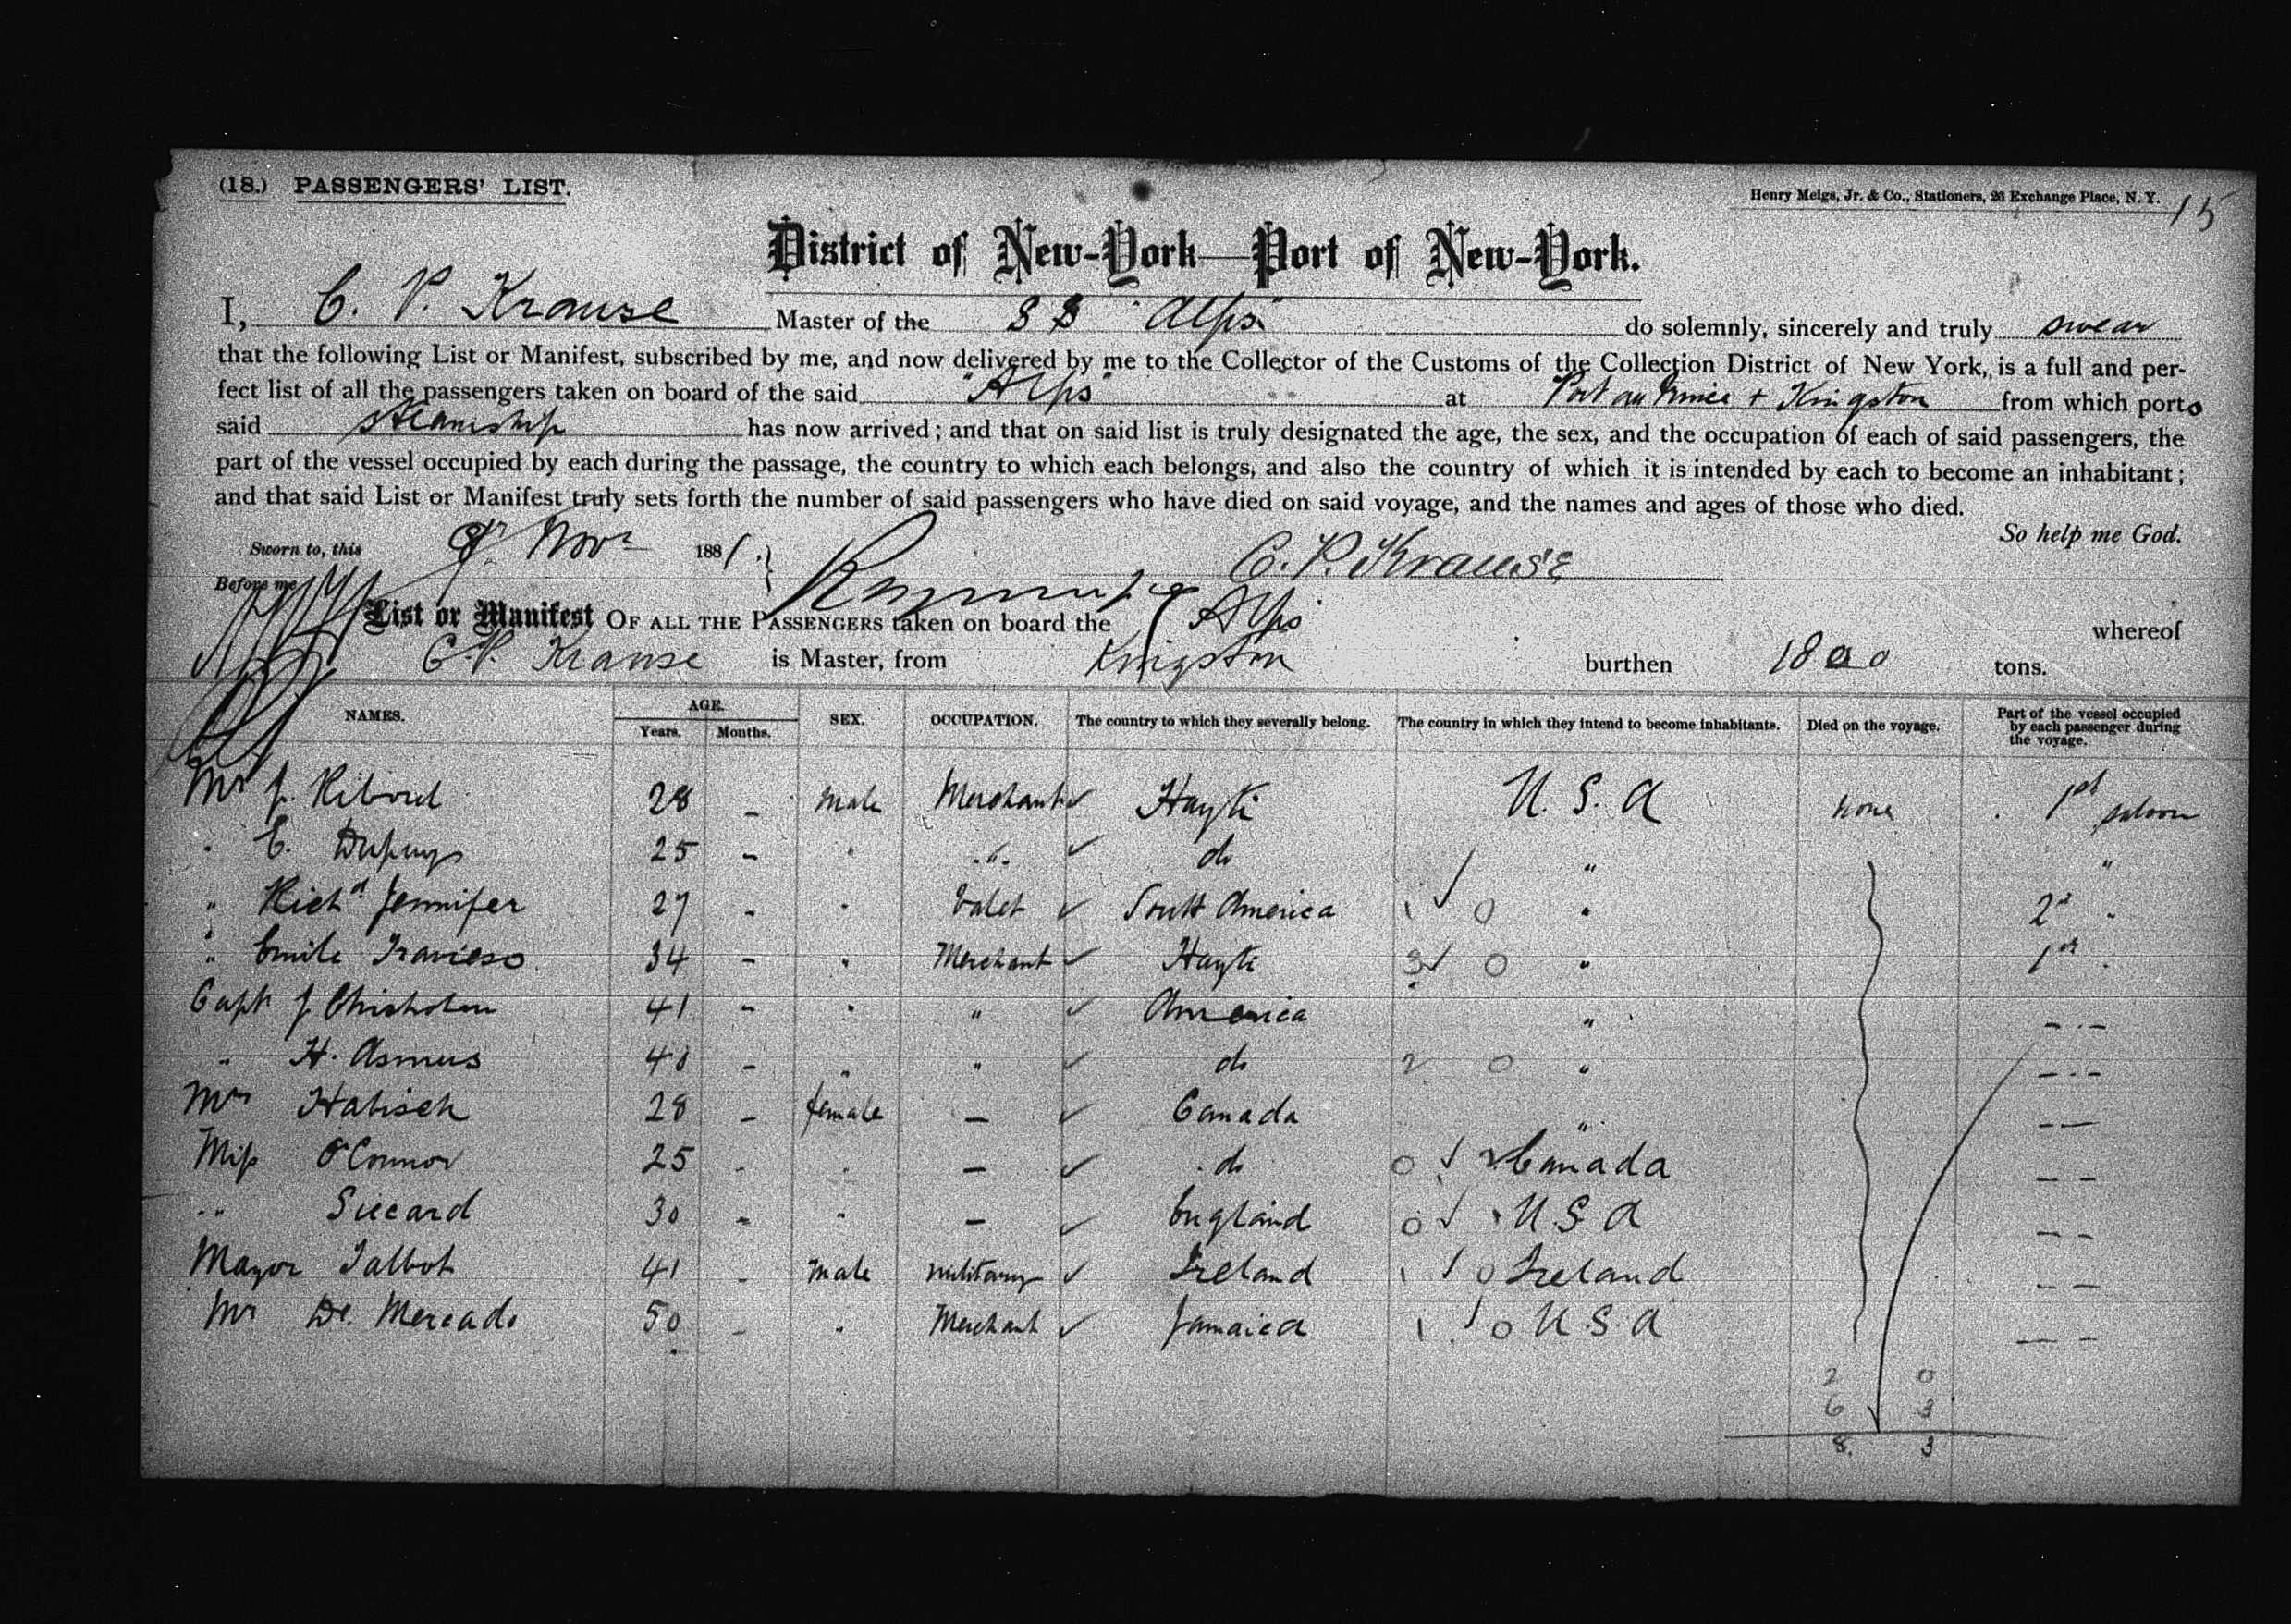 (18.) PASSENGERS' LIST.
Henry Meigs, Jr. & Co., Stationers, 26 Exchange Place, N. Y.
15
District of New-York—Port of New-York.
I, C. P. Krause Master of the SS "Alps" do solemnly, sincerely and truly swear
that the following List or Manifest, subscribed by me, and now delivered by me to the Collector of the Customs of the Collection District of New York, is a full and per-
fect list of all the passengers taken on board of the said "Alps" at Port au Prince + Kingston from which ports
said steamship has now arrived; and that on said list is truly designated the age, the sex, and the occupation of each of said passengers, the
part of the vessel occupied by each during the passage, the country to which each belongs, and also the country of which it is intended by each to become an inhabitant;
and that said List or Manifest truly sets forth the number of said passengers who have died on said voyage, and the names and ages of those who died.
So help me God.
Sworn to, this Novr 1881.
C. P. Krause
Before me
List or Manifest OF ALL THE PASSENGERS taken on board the Alps whereof
C. P. Krause is Master, from Kingston burthen 1800 tons.
NAMES. AGE. Years. Months. SEX. OCCUPATION. The country to which they severally belong. The country in which they intend to become inhabitants. Died on the voyage. Part of the vessel occupied by each passenger during the voyage.
Mr J. 28 – Male Merchant ✓ Hayti U. S. A none 1st saloon
" E. Dupuys 25 – " " ✓ do " "
" Richd Jennifer 27 – " Valet ✓ South America ✓ 0 " 2d "
" Emile Travieso 34 – " Merchant ✓ Hayti 3 ✓ 0 " 1st "
Capt J Chisholm 41 – " " ✓ America " – " –
" H. Asmus 40 – " " ✓ do 2 0 " – " –
Mrs Habisch 28 – female – ✓ Canada " – –
Miss O'Connor 25 – " – ✓ do 0 ✓ Canada – –
" Siccard 30 – " – ✓ England 0 ✓ U. S. A – –
Mayor Talbot 41 – Male military ✓ Ireland ✓ 0 Ireland – –
Mr De. Mercado 50 – " Merchant ✓ Jamaica ✓ 0 U. S. A – –
2 0
6 3
8. 3